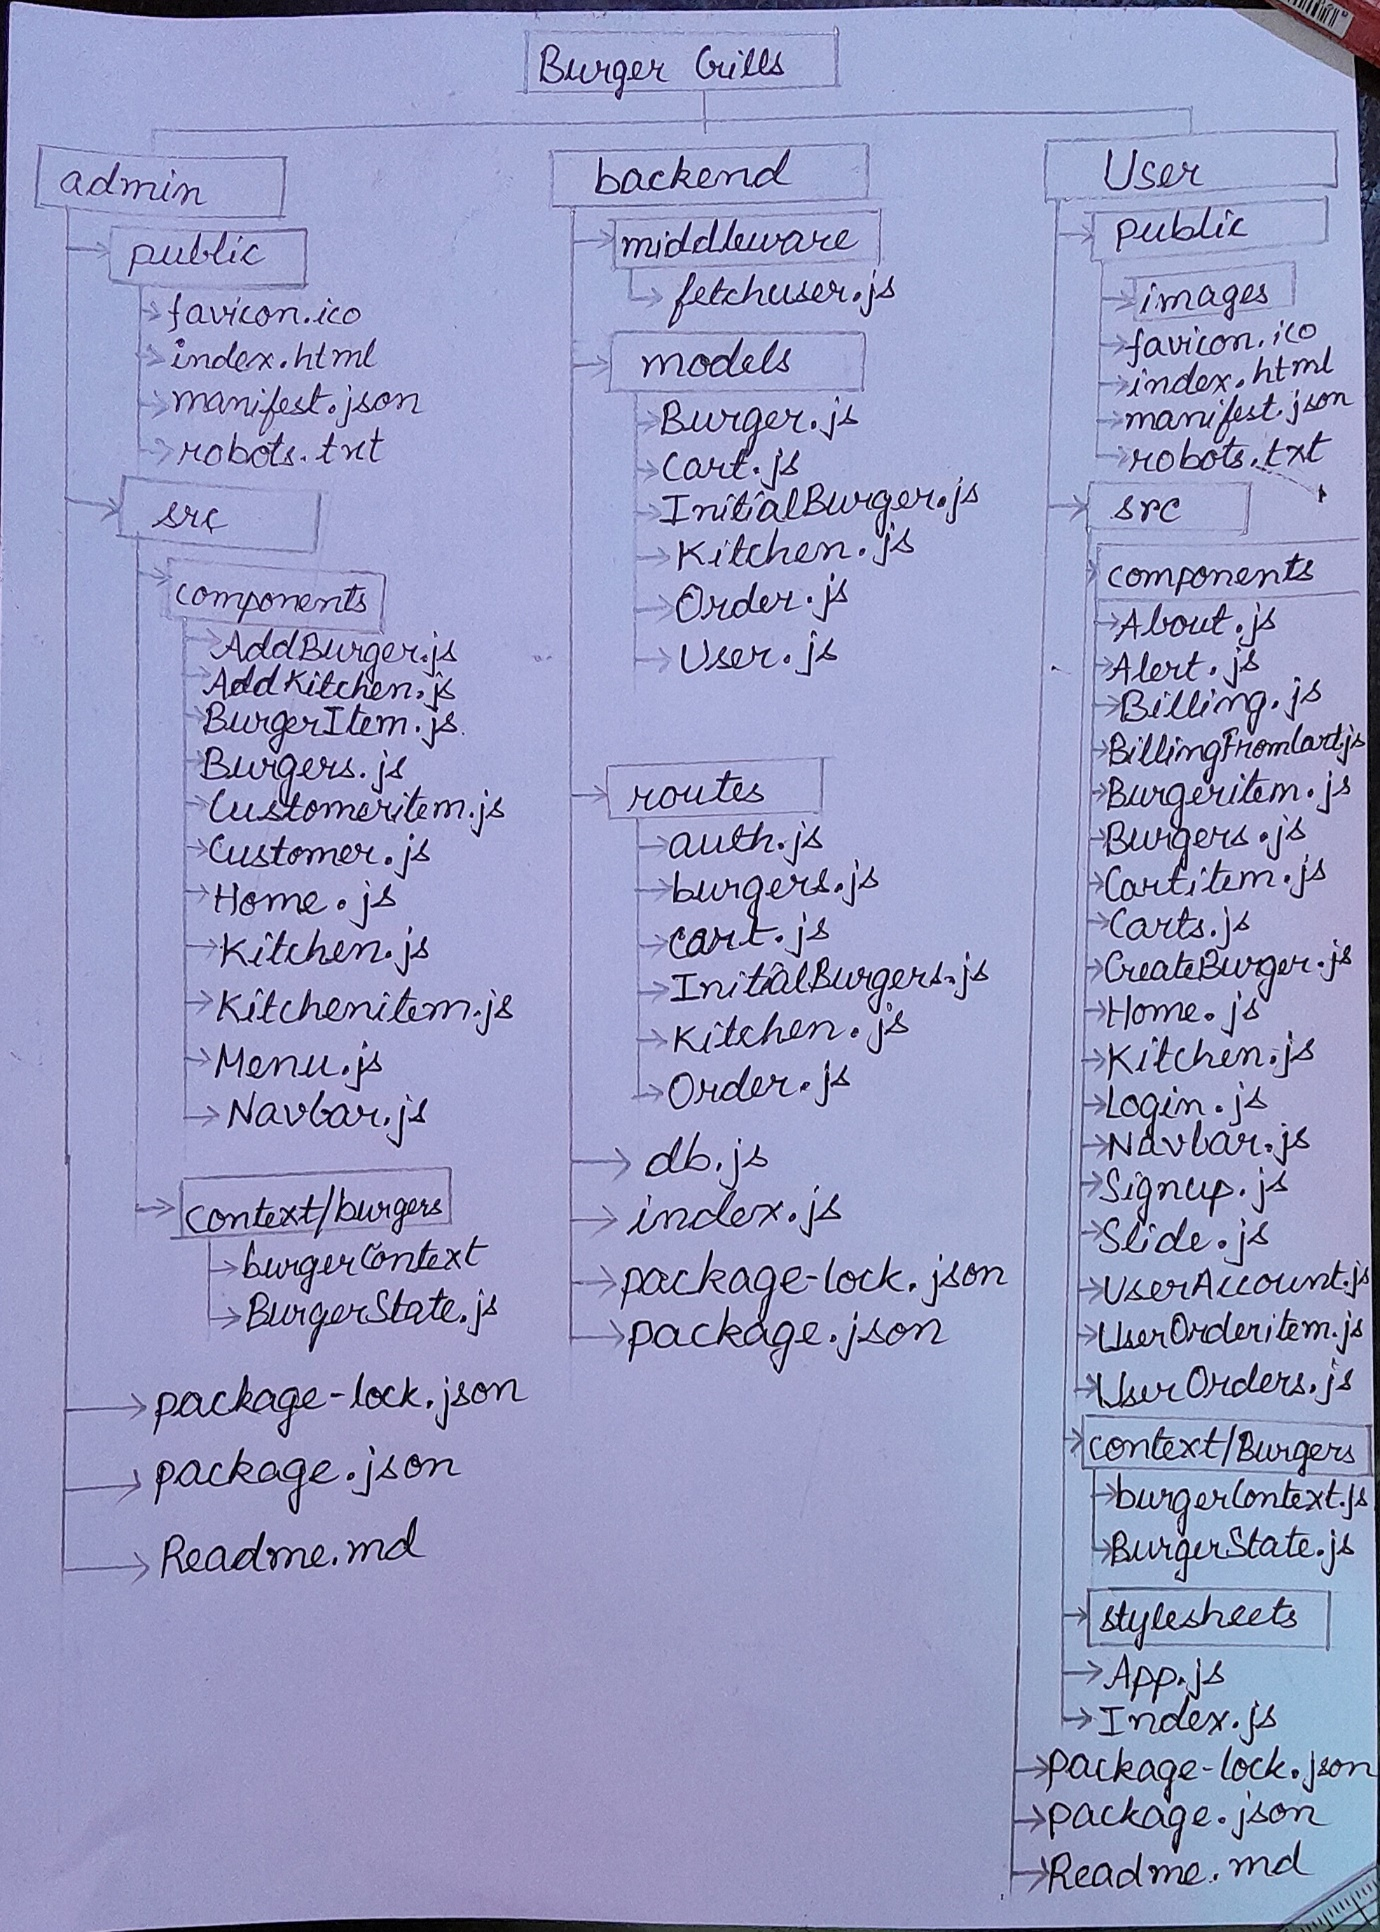 Burger Grills
admin
public
favicon.ico
index.html
manifest.json
robots.txt
src
components
AddBurger.js
AddKitchen.js
BurgerItem.js
Burgers.js
Customeritem.js
Customer.js
Home.js
Kitchen.js
Kitchenitem.js
Menu.js
Navbar.js
context/burgers
burgerContext
BurgerState.js
package-lock.json
package.json
Readme.md
backend
middleware
fetchuser.js
models
Burger.js
Cart.js
InitialBurger.js
Kitchen.js
Order.js
User.js
routes
auth.js
burgers.js
cart.js
InitialBurgers.js
Kitchen.js
Order.js
db.js
index.js
package-lock.json
package.json
User
public
images
favicon.ico
index.html
manifest.json
robots.txt
src
components
About.js
Alert.js
Billing.js
BillingFromCart.js
Burgeritem.js
Burgers.js
Cartitem.js
Carts.js
CreateBurger.js
Home.js
Kitchen.js
Login.js
Navbar.js
Signup.js
Slide.js
UserAccount.js
UserOrderitem.js
UserOrders.js
context/Burgers
burgerContext.js
BurgerState.js
stylesheets
App.js
Index.js
package-lock.json
package.json
Readme.md